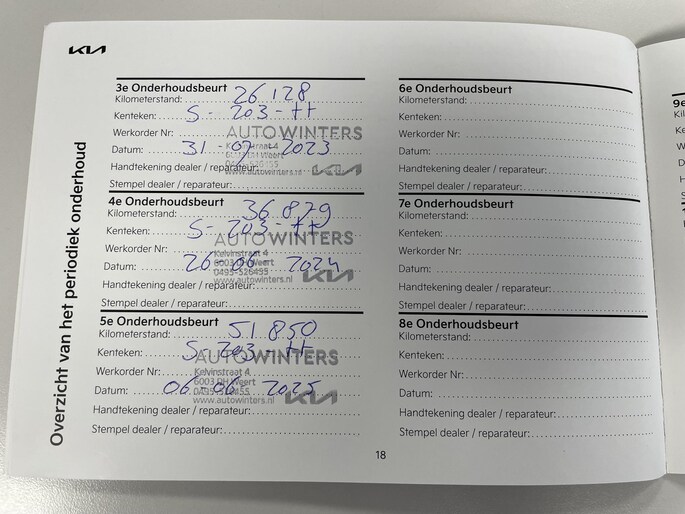 KIA
Overzicht van het periodiek onderhoud
3e Onderhoudsbeurt
Kilometerstand: 26 128
Kenteken: S-203-tt
Werkorder Nr:
AUTOWINTERS
Datum: 31-07-2023
Handtekening dealer / reparateur:
www.autowinters.nl
KIA
Stempel dealer / reparateur:
4e Onderhoudsbeurt
Kilometerstand: 36 879
Kenteken: S-203-tt
Werkorder Nr:
AUTOWINTERS
Kelvinstraat 4
Datum: 26-06-2024
0495-526455
Handtekening dealer / reparateur:
www.autowinters.nl
KIA
Stempel dealer / reparateur:
5e Onderhoudsbeurt
Kilometerstand: 51 850
Kenteken: S-203-tt
AUTOWINTERS
Werkorder Nr:
Kelvinstraat 4
6003 DH Weert
Datum: 06-06-2025
www.autowinters.nl
KIA
Handtekening dealer / reparateur:
Stempel dealer / reparateur:
6e Onderhoudsbeurt
Kilometerstand:
Kenteken:
Werkorder Nr:
Datum:
Handtekening dealer / reparateur:
Stempel dealer / reparateur:
7e Onderhoudsbeurt
Kilometerstand:
Kenteken:
Werkorder Nr:
Datum:
Handtekening dealer / reparateur:
Stempel dealer / reparateur:
8e Onderhoudsbeurt
Kilometerstand:
Kenteken:
Werkorder Nr:
Datum:
Handtekening dealer / reparateur:
Stempel dealer / reparateur:
18
9e